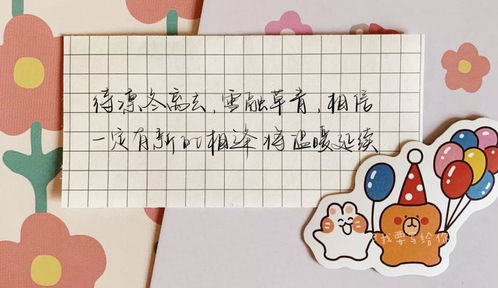 待凛冬离去，雪融草青，相信
一定有新的相逢 将温暖延续
我要写给你